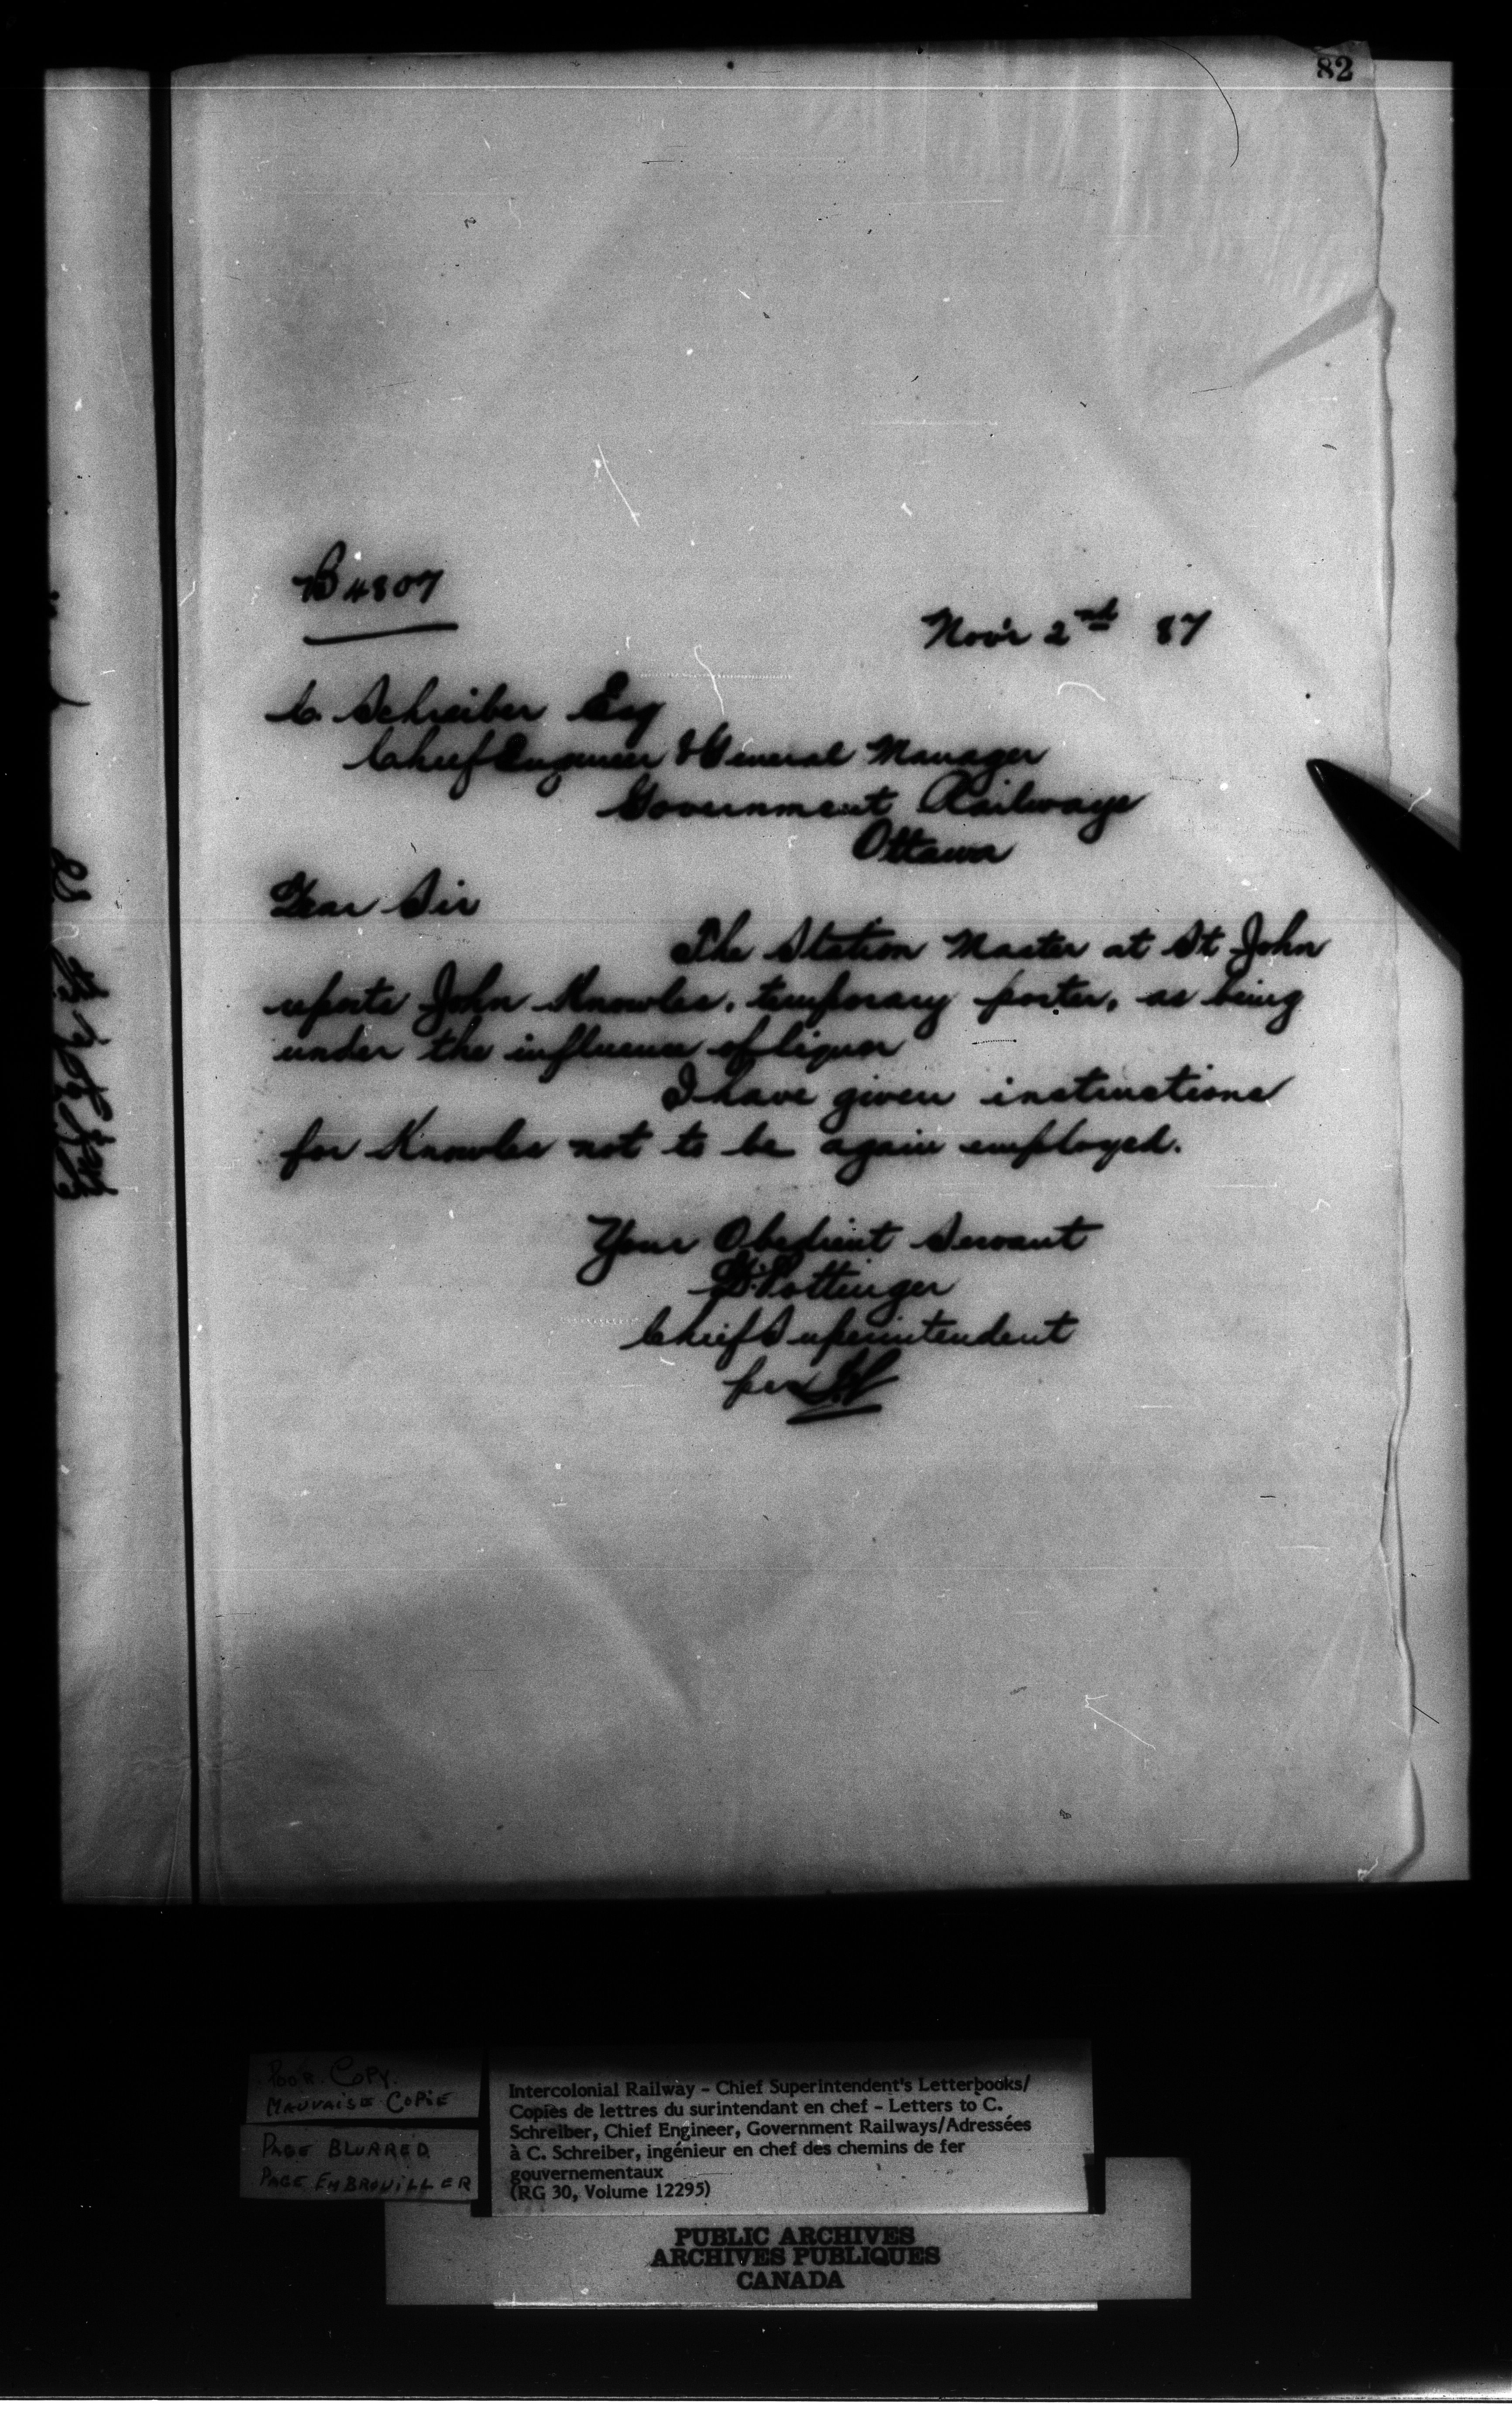 82
B 4807
Nov'r 2nd 87
C. Schreiber Esq
Chief Engineer & General Manager
Government Railways
Ottawa
Dear Sir
The Station Master at St John
reports John Knowles, temporary porter, as being
under the influence of liquor
I have given instructions
for Knowles not to be again employed.
Your Obedient Servant
D. Pottinger
Chief Superintendent
per
POOR COPY.
MAUVAISE COPIE
PAGE BLURRED
PAGE EMBROUILLER
Intercolonial Railway - Chief Superintendent's Letterbooks/
Copies de lettres du surintendant en chef - Letters to C.
Schreiber, Chief Engineer, Government Railways/Adressées
à C. Schreiber, ingénieur en chef des chemins de fer
gouvernementaux
(RG 30, Volume 12295)
PUBLIC ARCHIVES
ARCHIVES PUBLIQUES
CANADA